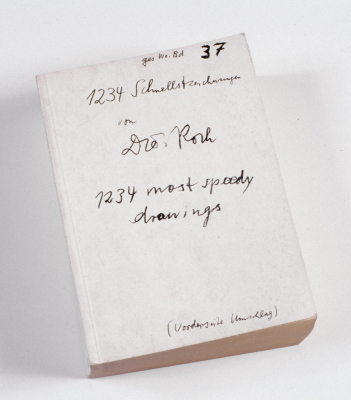 ges. We. Bd 37
1234 Schnellstzeichnungen
von
Diō. Roth
1234 most speedy
drawings
(Vorderseite Umschlag)